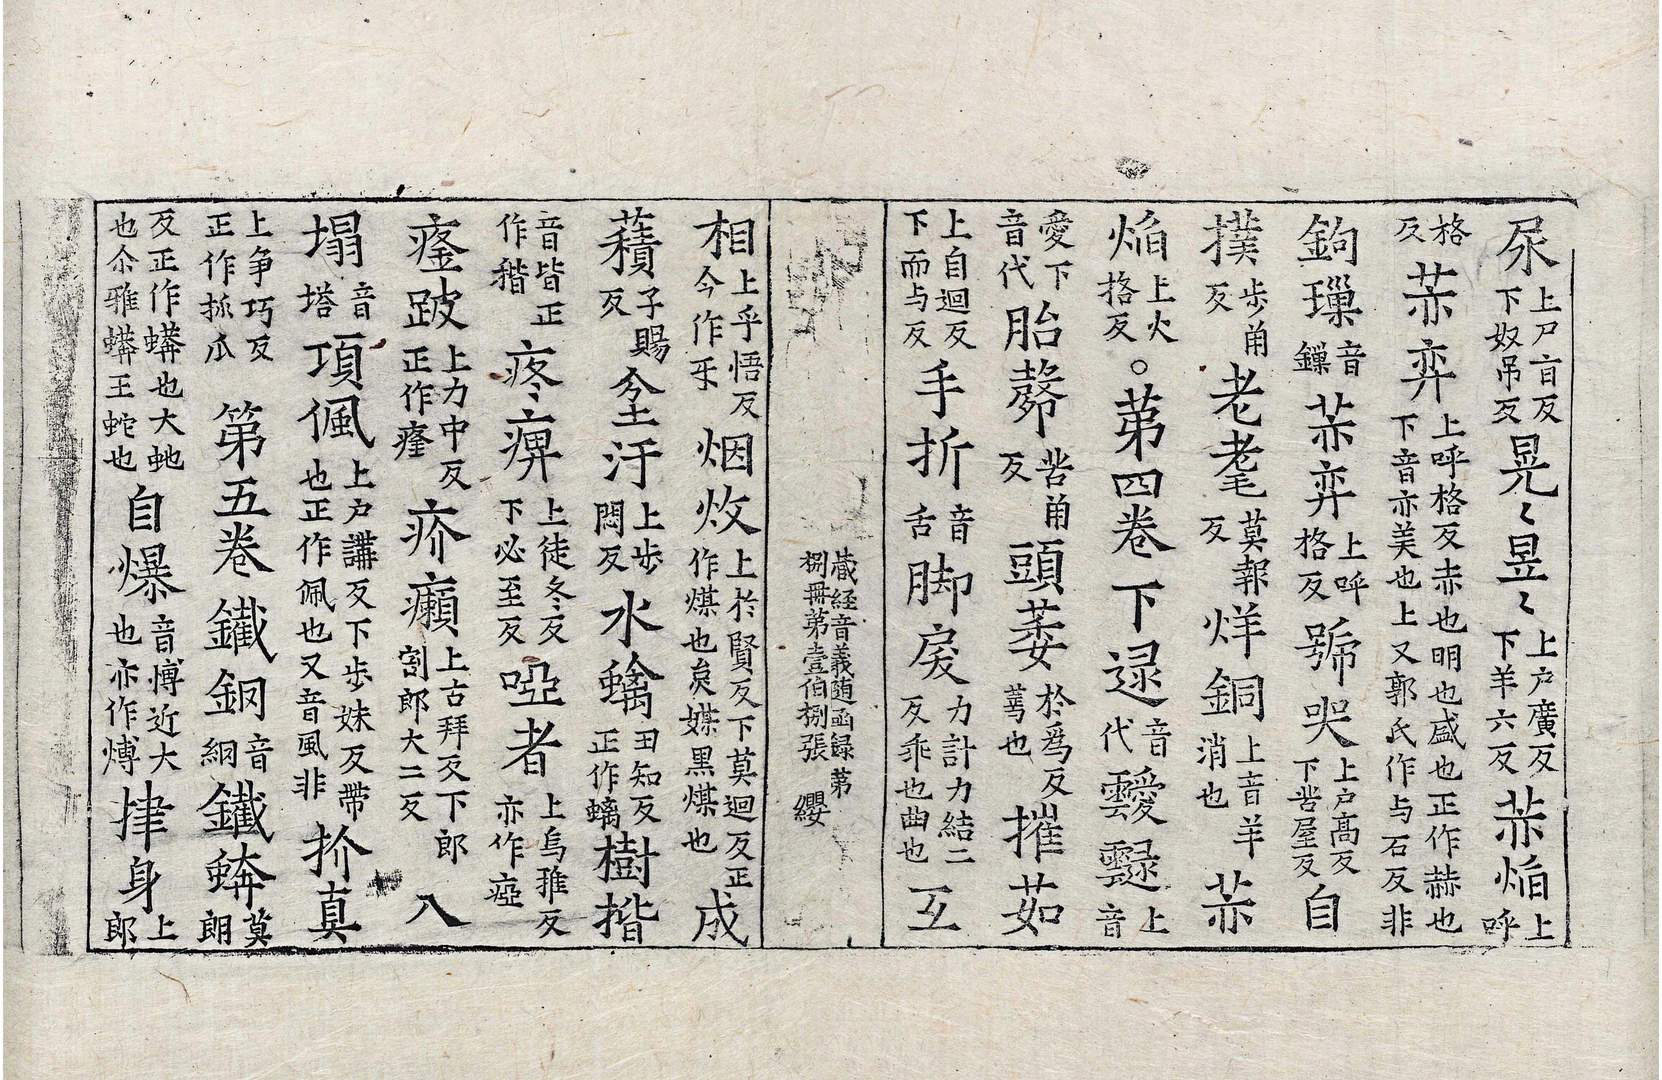 尿上尸盲反下奴吊反晃〻昱〻上户廣反下羊六反𤆍焰上呼
格反𤆍弈上呼格反赤也明也盛也正作赫也下音亦美也上又郭氏作与石反非
鉤璅音鏁𤆍弈上呼格反號哭上户高反下苦屋反自
撲步角反老耄莫報反烊銅上音羊消也𤆍
焰上火格反。苐四卷下逯音代靉靆上音
愛下音代胎㱿苦角反頭萎於為反蔫也摧茹
上自迴反下而与反手折音舌脚戾力計力結二反乖也曲也互
藏経音義随函録苐捌冊苐壹伯捌張 纓
相上乎悟反今作𤘅烟炆上於賢反下莫迴反正作煤也炱煤黑煤也成
𧂐子賜反坌汙上步悶反水螭丑知反正作螭樹揩
音皆正作稭疼痹上徒冬反下必至反啞者上烏雅反亦作瘂
㾭跛上力中反正作癃疥癩上古拜反下郎割郎大二反八
塌音塔項佩上户講反下步妹反帶也正作佩也又音風非抓真
上爭巧反正作抓爪 第五卷鐵鋼音綱鐵蟒莫朗
反正作蟒也大虵也尒雅蟒王蛇也自爆音博近大也亦作煿𦘔身上郎